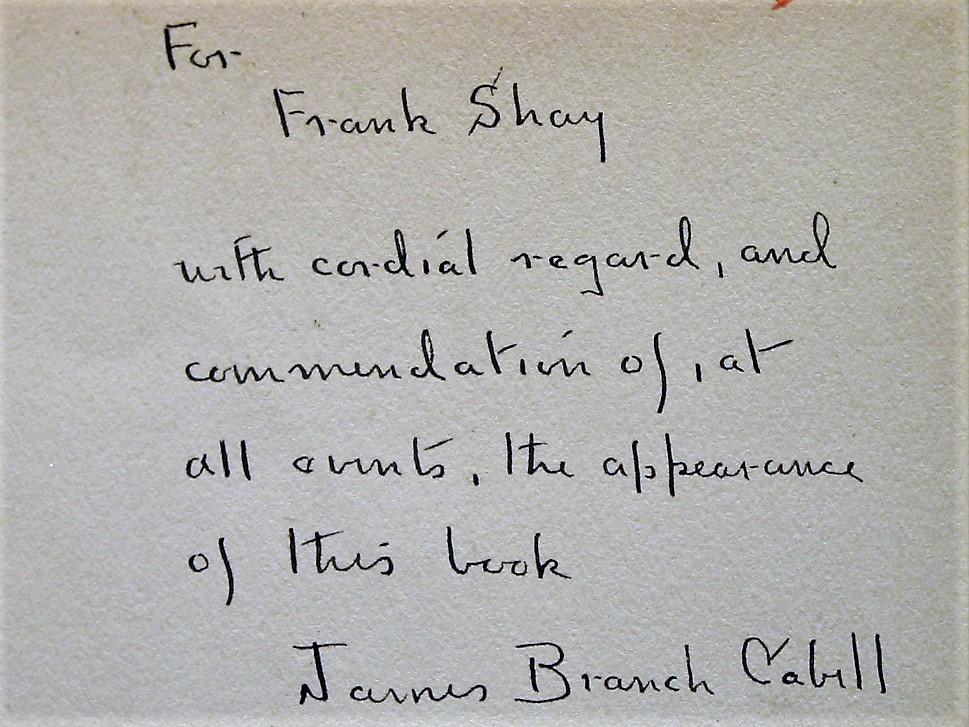 For
Frank Shay
with cordial regard, and
commendation of, at
all events, the appearance
of this book
James Branch Cabell